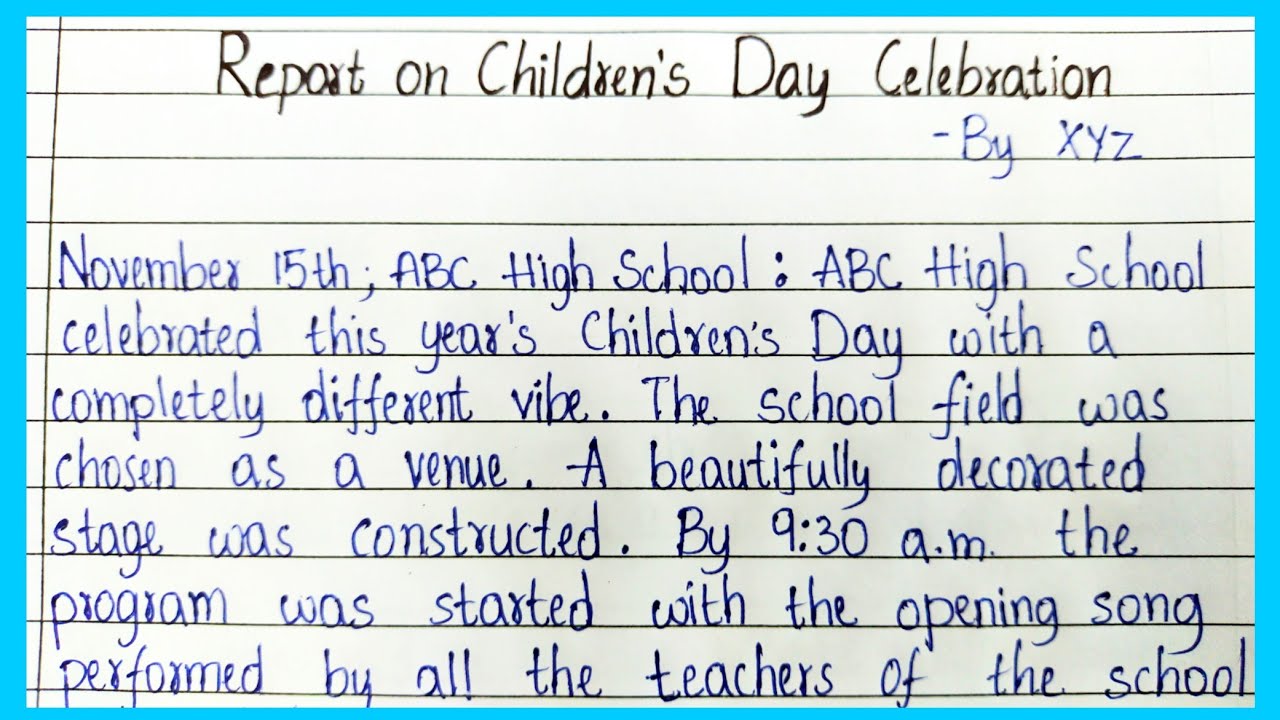 Report on Children's Day Celebration
-By XYZ
November 15th, ABC High School : ABC High School
celebrated this year's Children's Day with a
completely different vibe. The school field was
chosen as a venue. A beautifully decorated
stage was constructed. By 9:30 a.m. the
program was started with the opening song
performed by all the teachers of the school